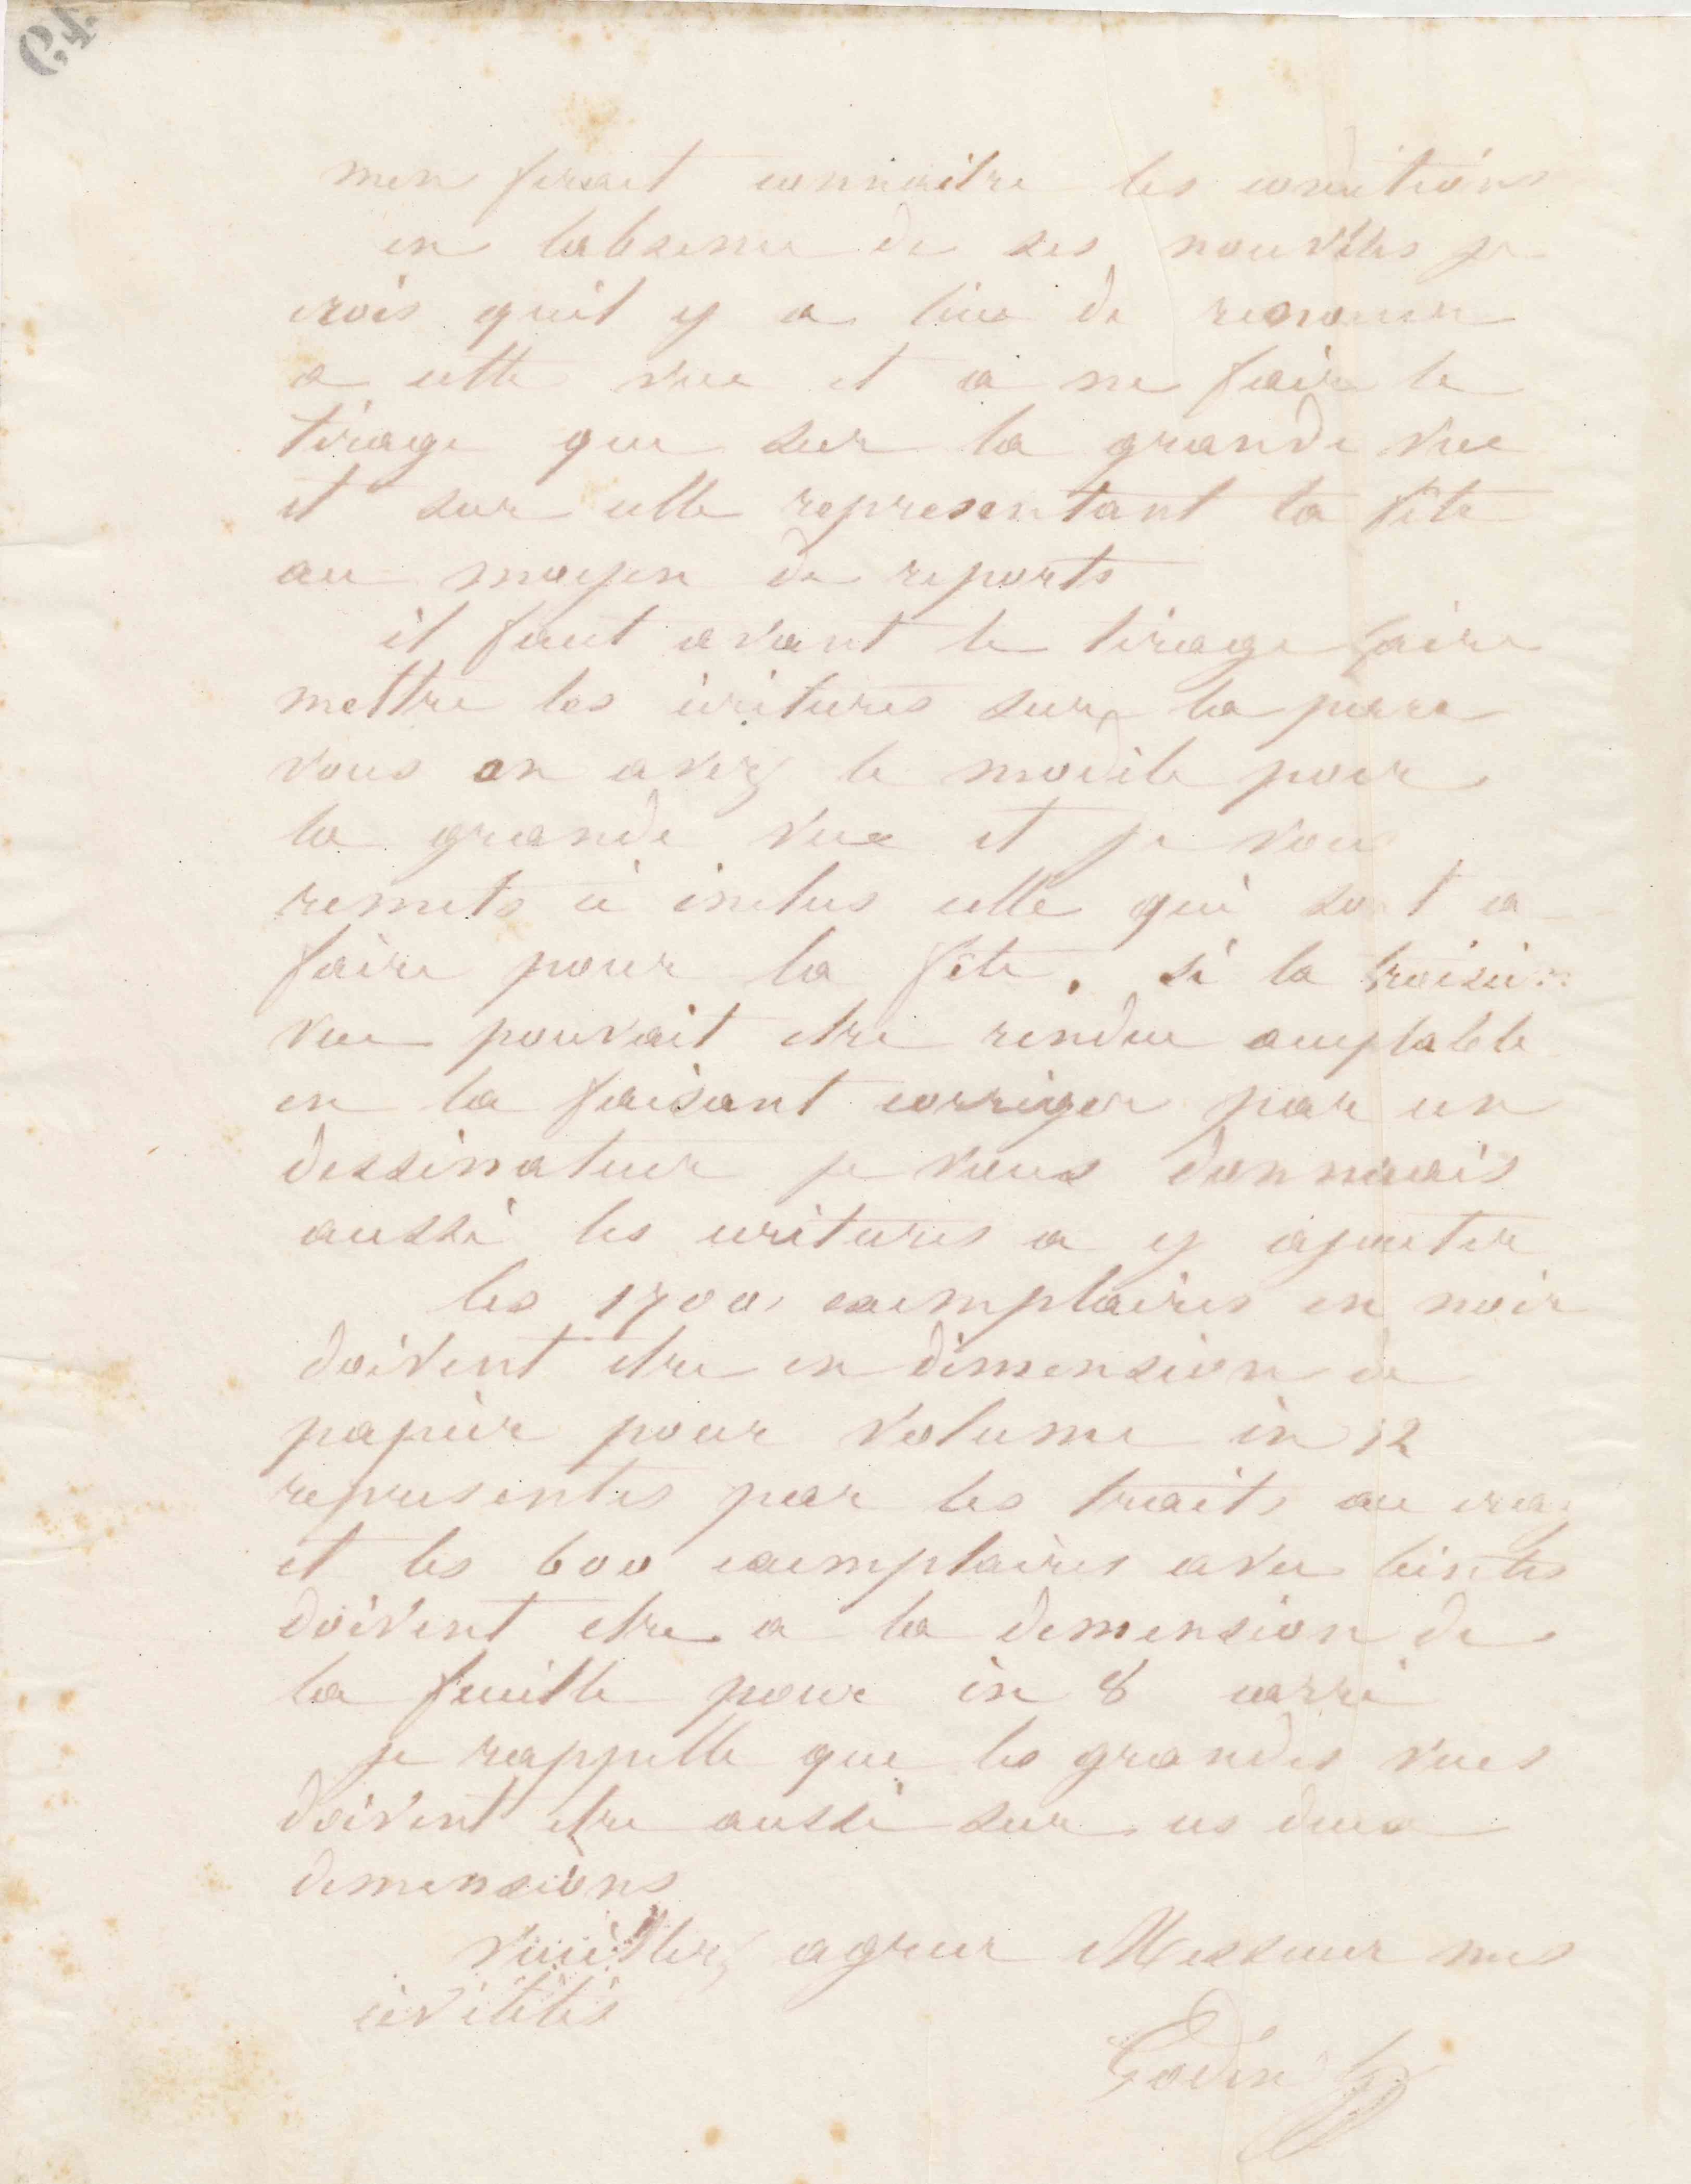 men ferait connaitre les conditions
en labsence de ses nouvelles je
crois quil y a lieu de renoncer
a cette vue et a ne faire le
tirage que sur la grande vue
et sur celle representant la fête
au moyen de reports
il faut avant le tirage faire
mettre les écritures sur la pierre
vous en avez le modèle pour
la grande vue et je vous
remets ci inclus celle qui sont a
faire pour la fête. si la troisiè
vue pouvait etre rendue acceptable
en la faisant corriger par un
dessinateur je vous donnerais
aussi les écritures a y ajouter
les 1700 exemplaires en noir
doivent etre en dimension de
papier pour volume in 12
representés par les traits au cra
et les 600 exemplaires avec teintes
doivent etre a la demension de
la feuille pour in 8 carré
je rappelle que les grandes vues
doivent etre aussi sur ces deux
demensions
veuillez agreer Messieur mes
civilités
Godin